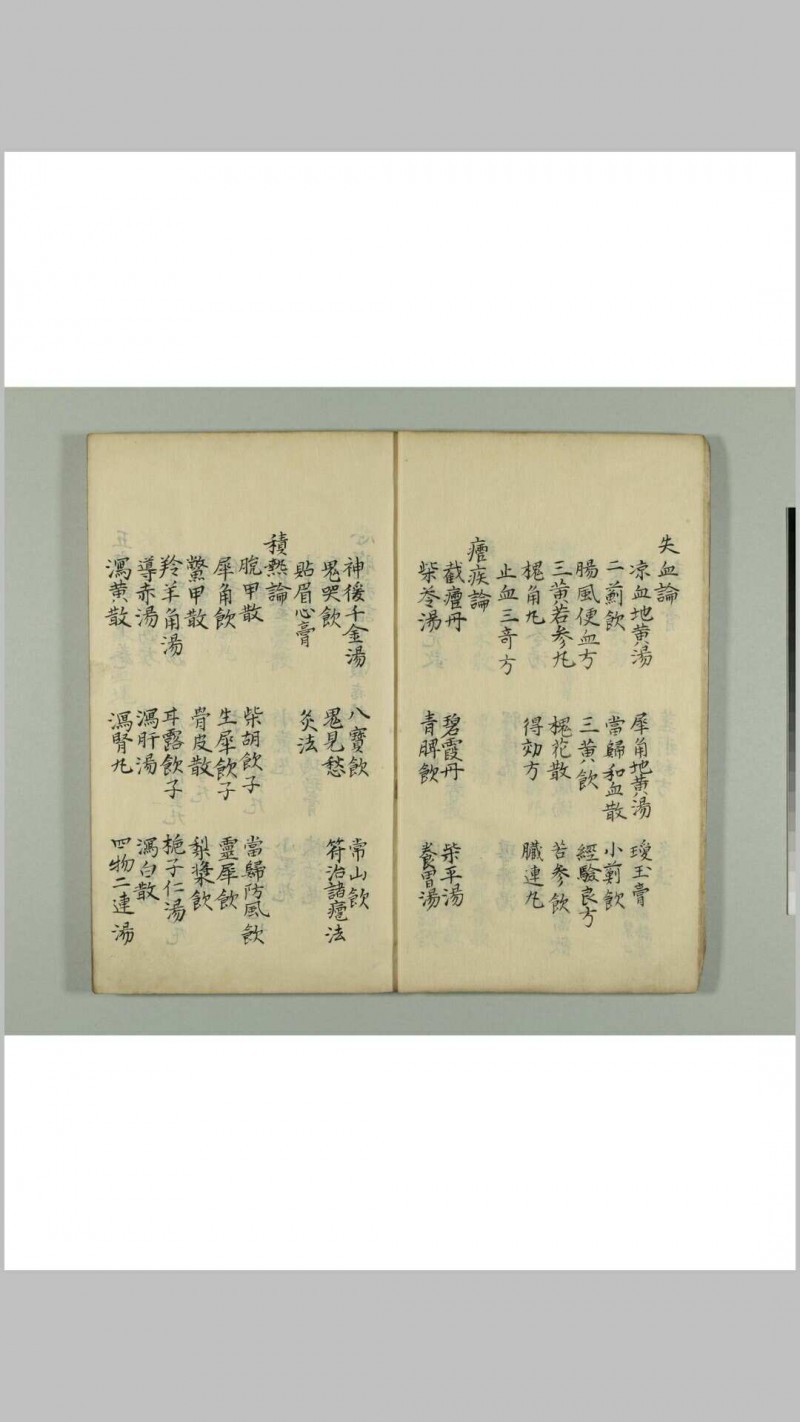 失血論
凉血地黄湯 犀角地黄湯 瓊玉膏
二薊飲 當歸和血散 小薊飲
腸風便血方 三黄飲 經驗良方
三黄苦参丸 槐花散 苦参飲
槐角丸 得効方 臟連丸
止血三竒方
瘧疾論
截瘧丹 碧霞丹 柴平湯
柴苓湯 青脾飲 養胃湯
神後千金湯 八寶飲 常山飲
鬼哭飲 鬼見愁 符治諸瘧法
貼眉心膏 灸法
積熱論
脫甲散 柴胡飲子 當歸防風飲
犀角飲 生犀飲子 靈犀飲
鱉甲散 骨皮散 梨漿飲
羚羊角湯 耳露飲子 梔子仁湯
導赤湯 瀉肝湯 瀉白散
瀉黄散 瀉腎丸 四物二連湯